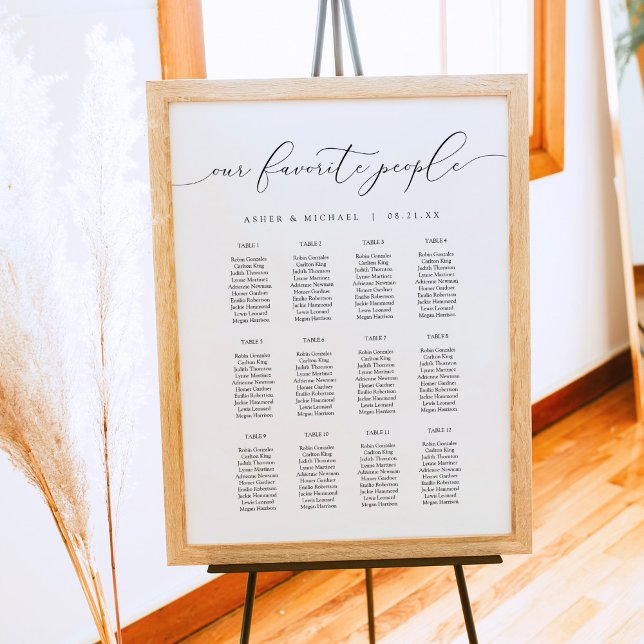 our favorite people
ASHER & MICHAEL | 08.21.XX
TABLE 1
Robin Gonzales
Carlton King
Judith Thornton
Lynne Martinez
Adrienne Newman
Homer Gardner
Emilio Robertson
Jackie Hammond
Lewis Leonard
Megan Harrison
TABLE 2
Robin Gonzales
Carlton King
Judith Thornton
Lynne Martinez
Adrienne Newman
Homer Gardner
Emilio Robertson
Jackie Hammond
Lewis Leonard
Megan Harrison
TABLE 3
Robin Gonzales
Carlton King
Judith Thornton
Lynne Martinez
Adrienne Newman
Homer Gardner
Emilio Robertson
Jackie Hammond
Lewis Leonard
Megan Harrison
TABLE 4
Robin Gonzales
Carlton King
Judith Thornton
Lynne Martinez
Adrienne Newman
Homer Gardner
Emilio Robertson
Jackie Hammond
Lewis Leonard
Megan Harrison
TABLE 5
Robin Gonzales
Carlton King
Judith Thornton
Lynne Martinez
Adrienne Newman
Homer Gardner
Emilio Robertson
Jackie Hammond
Lewis Leonard
Megan Harrison
TABLE 6
Robin Gonzales
Carlton King
Judith Thornton
Lynne Martinez
Adrienne Newman
Homer Gardner
Emilio Robertson
Jackie Hammond
Lewis Leonard
Megan Harrison
TABLE 7
Robin Gonzales
Carlton King
Judith Thornton
Lynne Martinez
Adrienne Newman
Homer Gardner
Emilio Robertson
Jackie Hammond
Lewis Leonard
Megan Harrison
TABLE 8
Robin Gonzales
Carlton King
Judith Thornton
Lynne Martinez
Adrienne Newman
Homer Gardner
Emilio Robertson
Jackie Hammond
Lewis Leonard
Megan Harrison
TABLE 9
Robin Gonzales
Carlton King
Judith Thornton
Lynne Martinez
Adrienne Newman
Homer Gardner
Emilio Robertson
Jackie Hammond
Lewis Leonard
Megan Harrison
TABLE 10
Robin Gonzales
Carlton King
Judith Thornton
Lynne Martinez
Adrienne Newman
Homer Gardner
Emilio Robertson
Jackie Hammond
Lewis Leonard
Megan Harrison
TABLE 11
Robin Gonzales
Carlton King
Judith Thornton
Lynne Martinez
Adrienne Newman
Homer Gardner
Emilio Robertson
Jackie Hammond
Lewis Leonard
Megan Harrison
TABLE 12
Robin Gonzales
Carlton King
Judith Thornton
Lynne Martinez
Adrienne Newman
Homer Gardner
Emilio Robertson
Jackie Hammond
Lewis Leonard
Megan Harrison